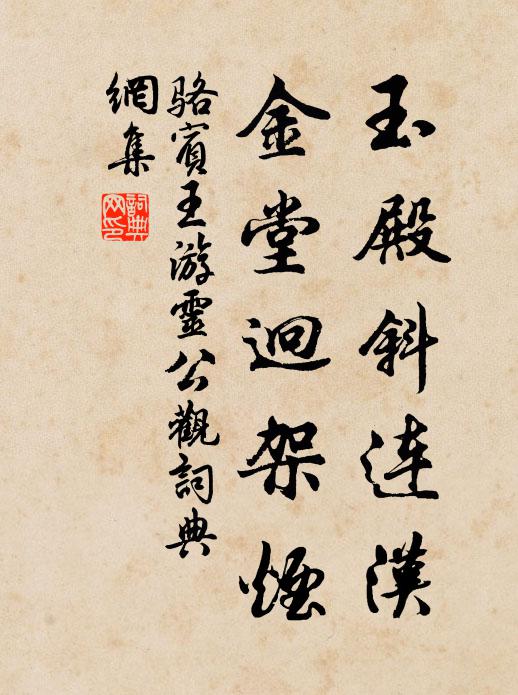 玉殿斜连漢
金堂迥架煙
骆賓王游靈公觀詞典
網集
詞典
网印